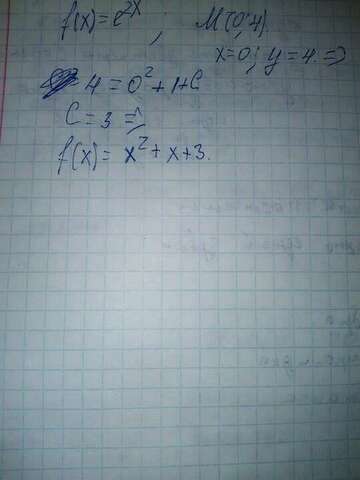 f(x)=e^{2x} ; M(0;4).
x=0; y=4. =>
4=0²+1+C
C=3 =>
f(x)= x²+x+3.